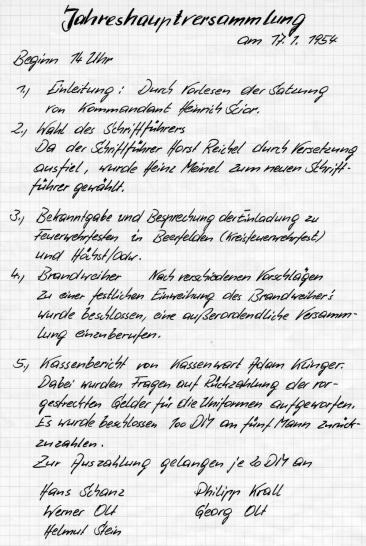 Jahreshauptversammlung
am 17.1. 1954
Beginn 14 Uhr
1., Einleitung: Durch Vorlesen der Satzung
von Kommandant Heinrich Scior.
2., Wahl des Schriftführers
Da der Schriftführer Horst Reichel durch Versetzung
ausfiel, wurde Heinz Meinel zum neuen Schrift-
führer gewählt.
3., Bekanntgabe und Besprechung der Einladung zu
Feuerwehrfesten in Beerfelden (Kreisfeuerwehrfest)
und Höchst/Odw.
4., Brandweiher Nach verschiedenen Vorschlägen
zu einer festlichen Einweihung des Brandweiher's
wurde beschlossen, eine außerordendliche Versamm-
lung einzuberufen.
5., Kassenbericht von Kassenwart Adam
Dabei wurden Fragen auf Rückzahlung der vor-
gestreckten Gelder für die Uniformen aufgeworfen.
Es wurde beschlossen 100 DM an fünf Mann zurück-
zuzahlen.
Zur Auszahlung gelangen je 20 DM an
Hans Schanz Philipp Krall
Werner Olt Georg Olt
Helmut Stein